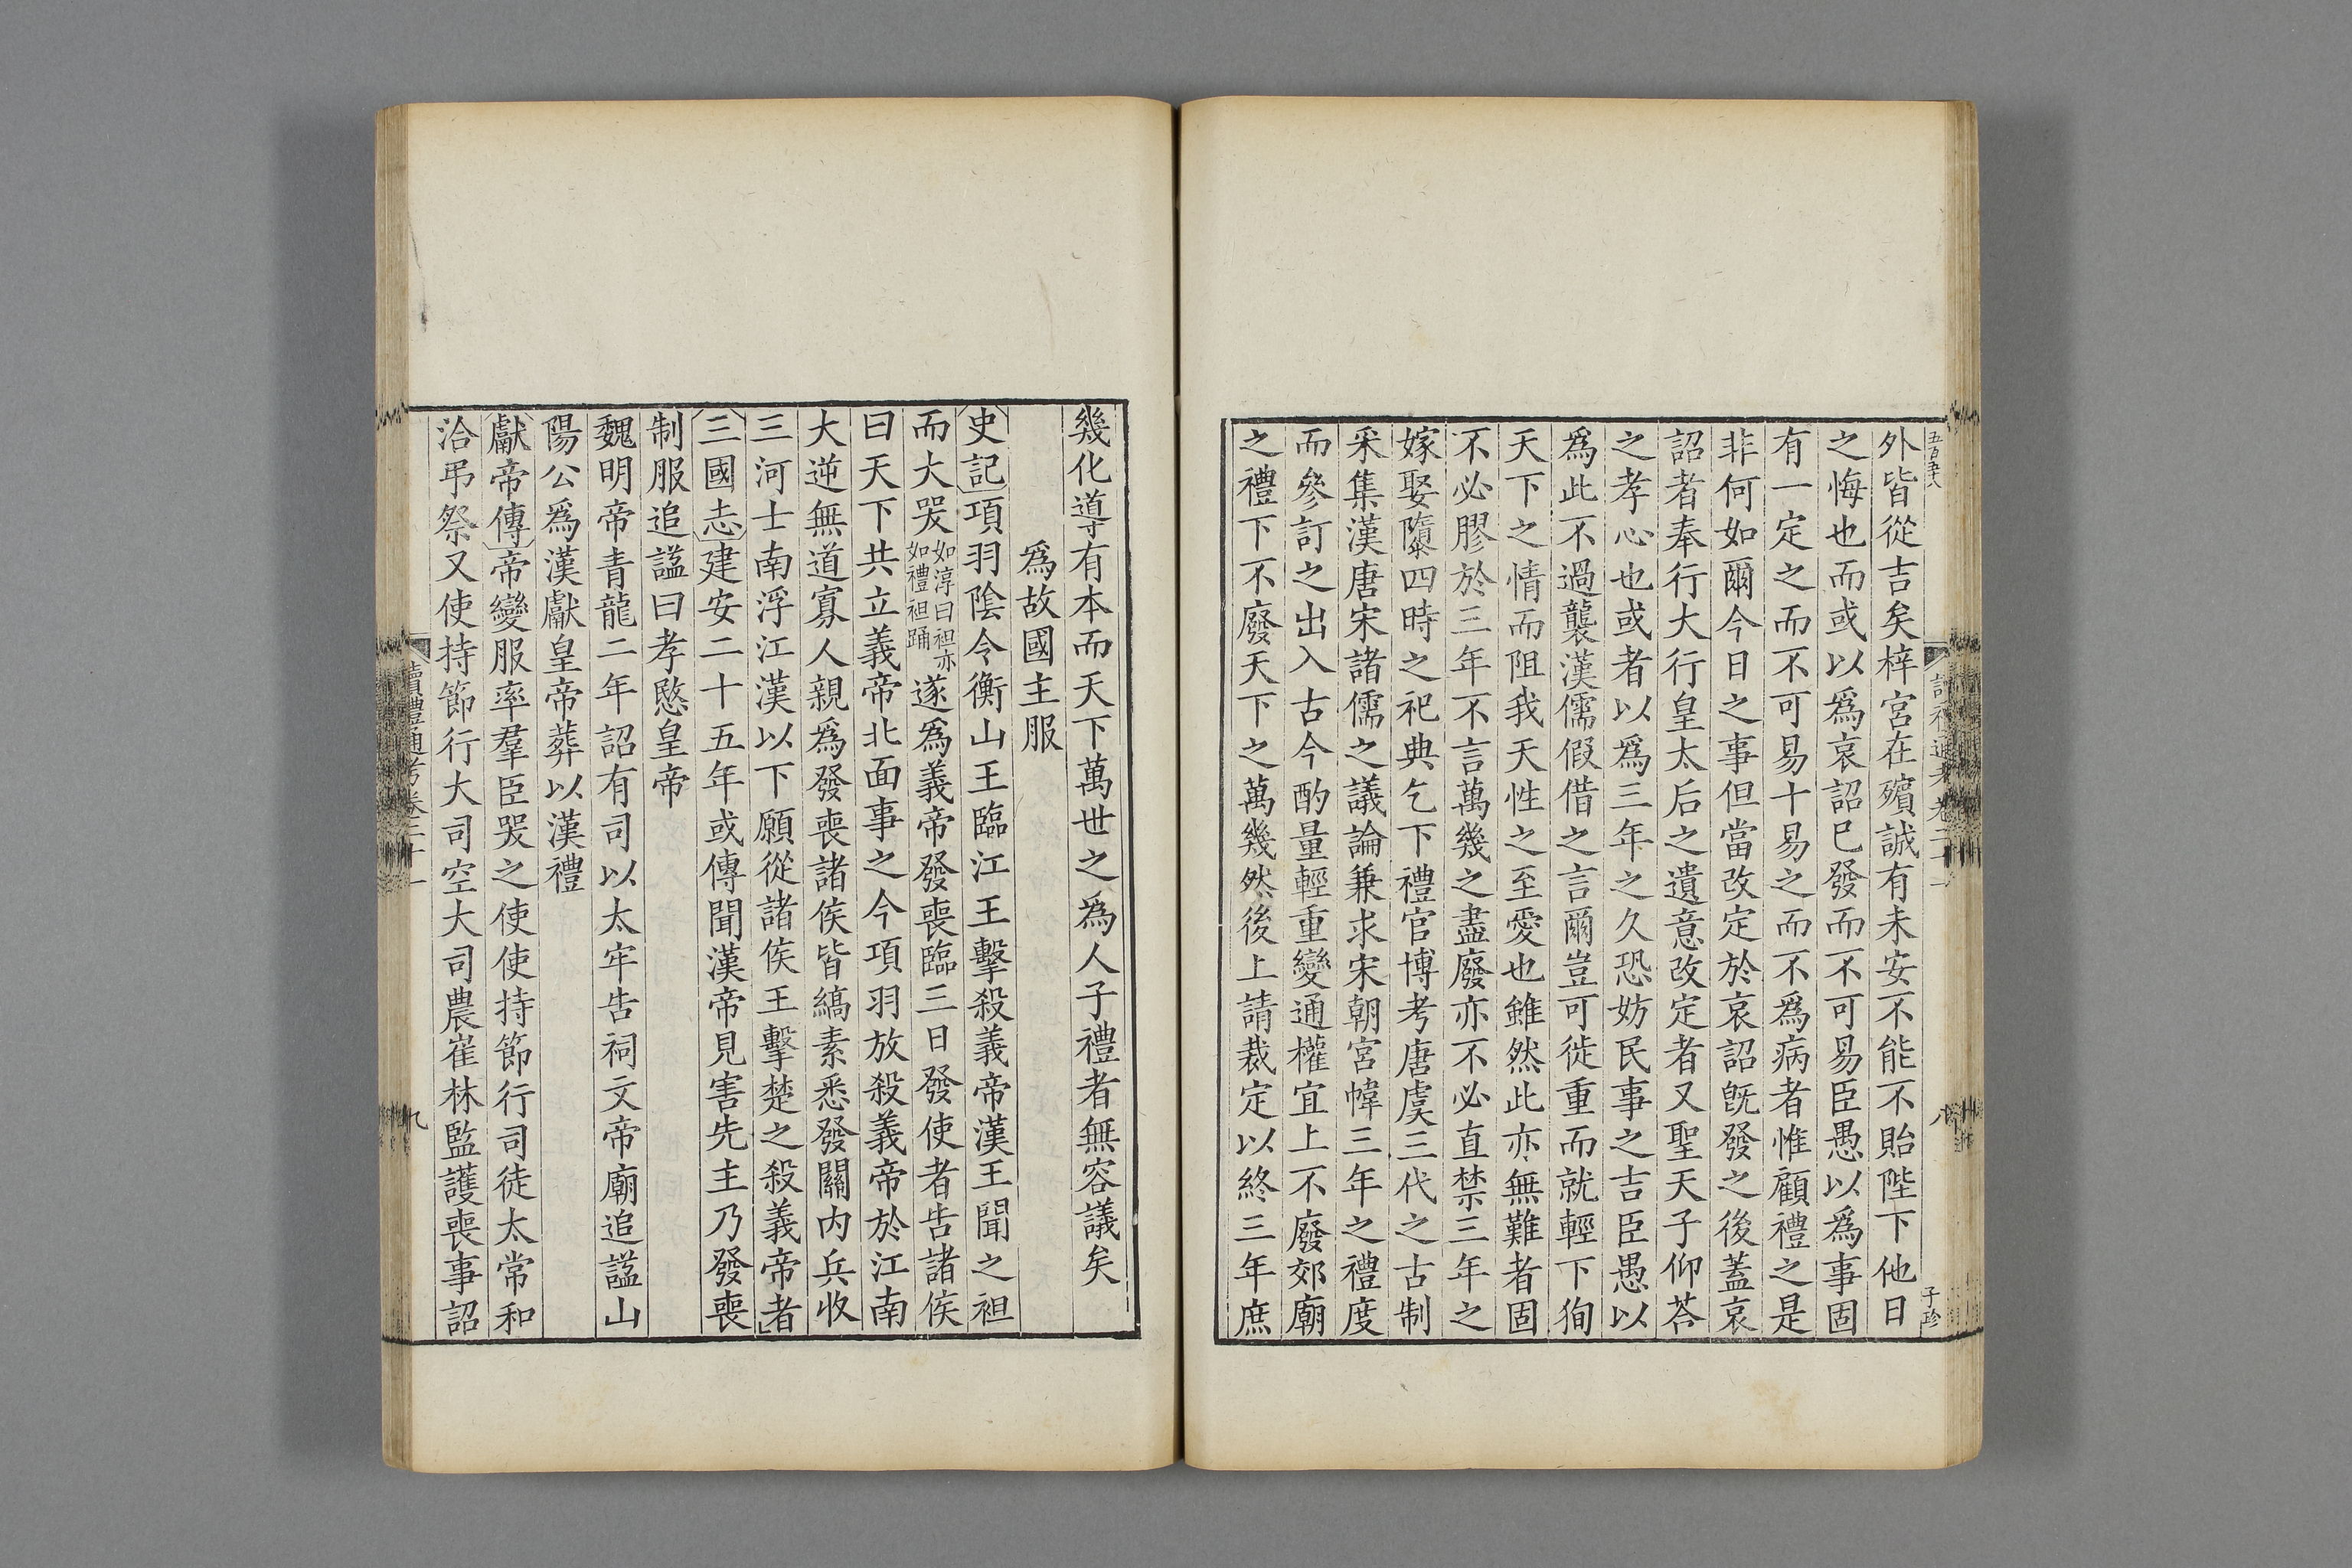 外皆從吉矣梓宮在殯誠有未安不能不貽陛下他日
之悔也而或以爲哀詔已發而不可易臣愚以爲事固
有一定之而不可易十易之而不爲病者惟顧禮之是
非何如爾今日之事但當改定於哀詔旣發之後蓋哀
詔者奉行大行皇太后之遺意改定者又聖天子仰荅
之孝心也或者以爲三年之久恐妨民事之吉臣愚以
爲此不過襲漢儒假借之言爾豈可徙重而就輕下狥
天下之情而阻我天性之至愛也雖然此亦無難者固
不必膠於三年不言萬幾之盡廢亦不必直禁三年之
嫁娶隳四時之祀典乞下禮官博考唐虞三代之古制
采集漢唐宋諸儒之議論兼求宋朝宮幃三年之禮度
而參訂之出入古今酌量輕重變通權宜上不廢郊廟
之禮下不廢天下之萬幾然後上請裁定以終三年庶
幾化導有本而天下萬世之爲人子禮者無容議矣
爲故國主服
史記項羽陰令衡山王臨江王擊殺義帝漢王聞之袒
而大哭如淳曰袒亦如禮袒踊遂爲義帝發喪臨三日發使者告諸侯
曰天下共立義帝北面事之今項羽放殺義帝於江南
大逆無道寡人親爲發喪諸侯皆縞素悉發關內兵收
三河士南浮江漢以下願從諸侯王擊楚之殺義帝者
三國志建安二十五年或傳聞漢帝見害先主乃發喪
制服追諡曰孝愍皇帝
魏明帝青龍二年詔有司以太牢告祠文帝廟追諡山
陽公爲漢獻皇帝葬以漢禮
獻帝傳帝變服率羣臣哭之使使持節行司徒太常和
洽弔祭又使持節行大司空大司農崔林監護喪事詔
讀禮通考卷二十一
九